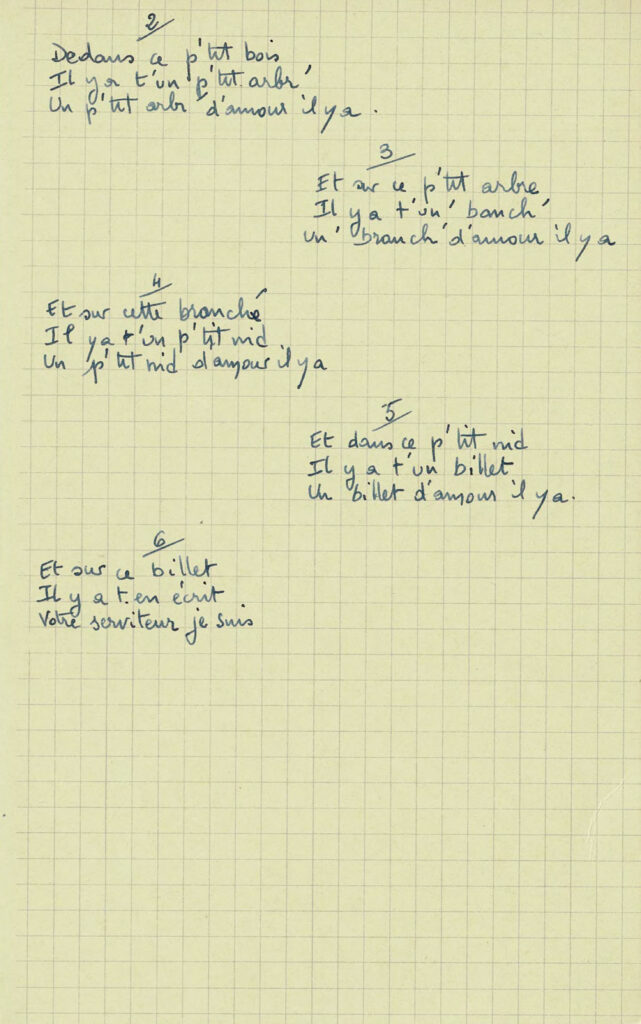 2
Dedans ce p'tit bois
Il y a t'un p'tit arbr'
Un p'tit arbr d'amour il y a.
3
Et sur ce p'tit arbre
Il y a t'un' banch'
un' branch' d'amour il y a
4
Et sur cette branché
Il y a t'un p'tit nid.
Un p'tit nid d'amour il y a
5
Et dans ce p'tit nid
Il y a t'un billet
Un billet d'amour il y a.
6
Et sur ce billet
Il y a t.en écrit
Votre serviteur je suis